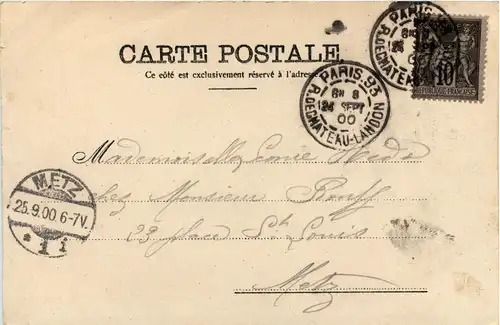 CARTE POSTALE.
Ce côté est exclusivement réservé à l'adresse
PARIS.93
8
24 SEPT
00
R. DE CHATEAU-LANDON
PARIS
R. DE CHATEAU-L
10
RÉPUBLIQUE FRANÇAISE
METZ
25.9.00.6-7V.
* 1 i
Mademoiselle
chez Monsieur
23 place St Louis
Metz